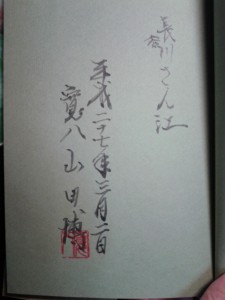 長谷川さん江
平成二十七年三月二日
八山田